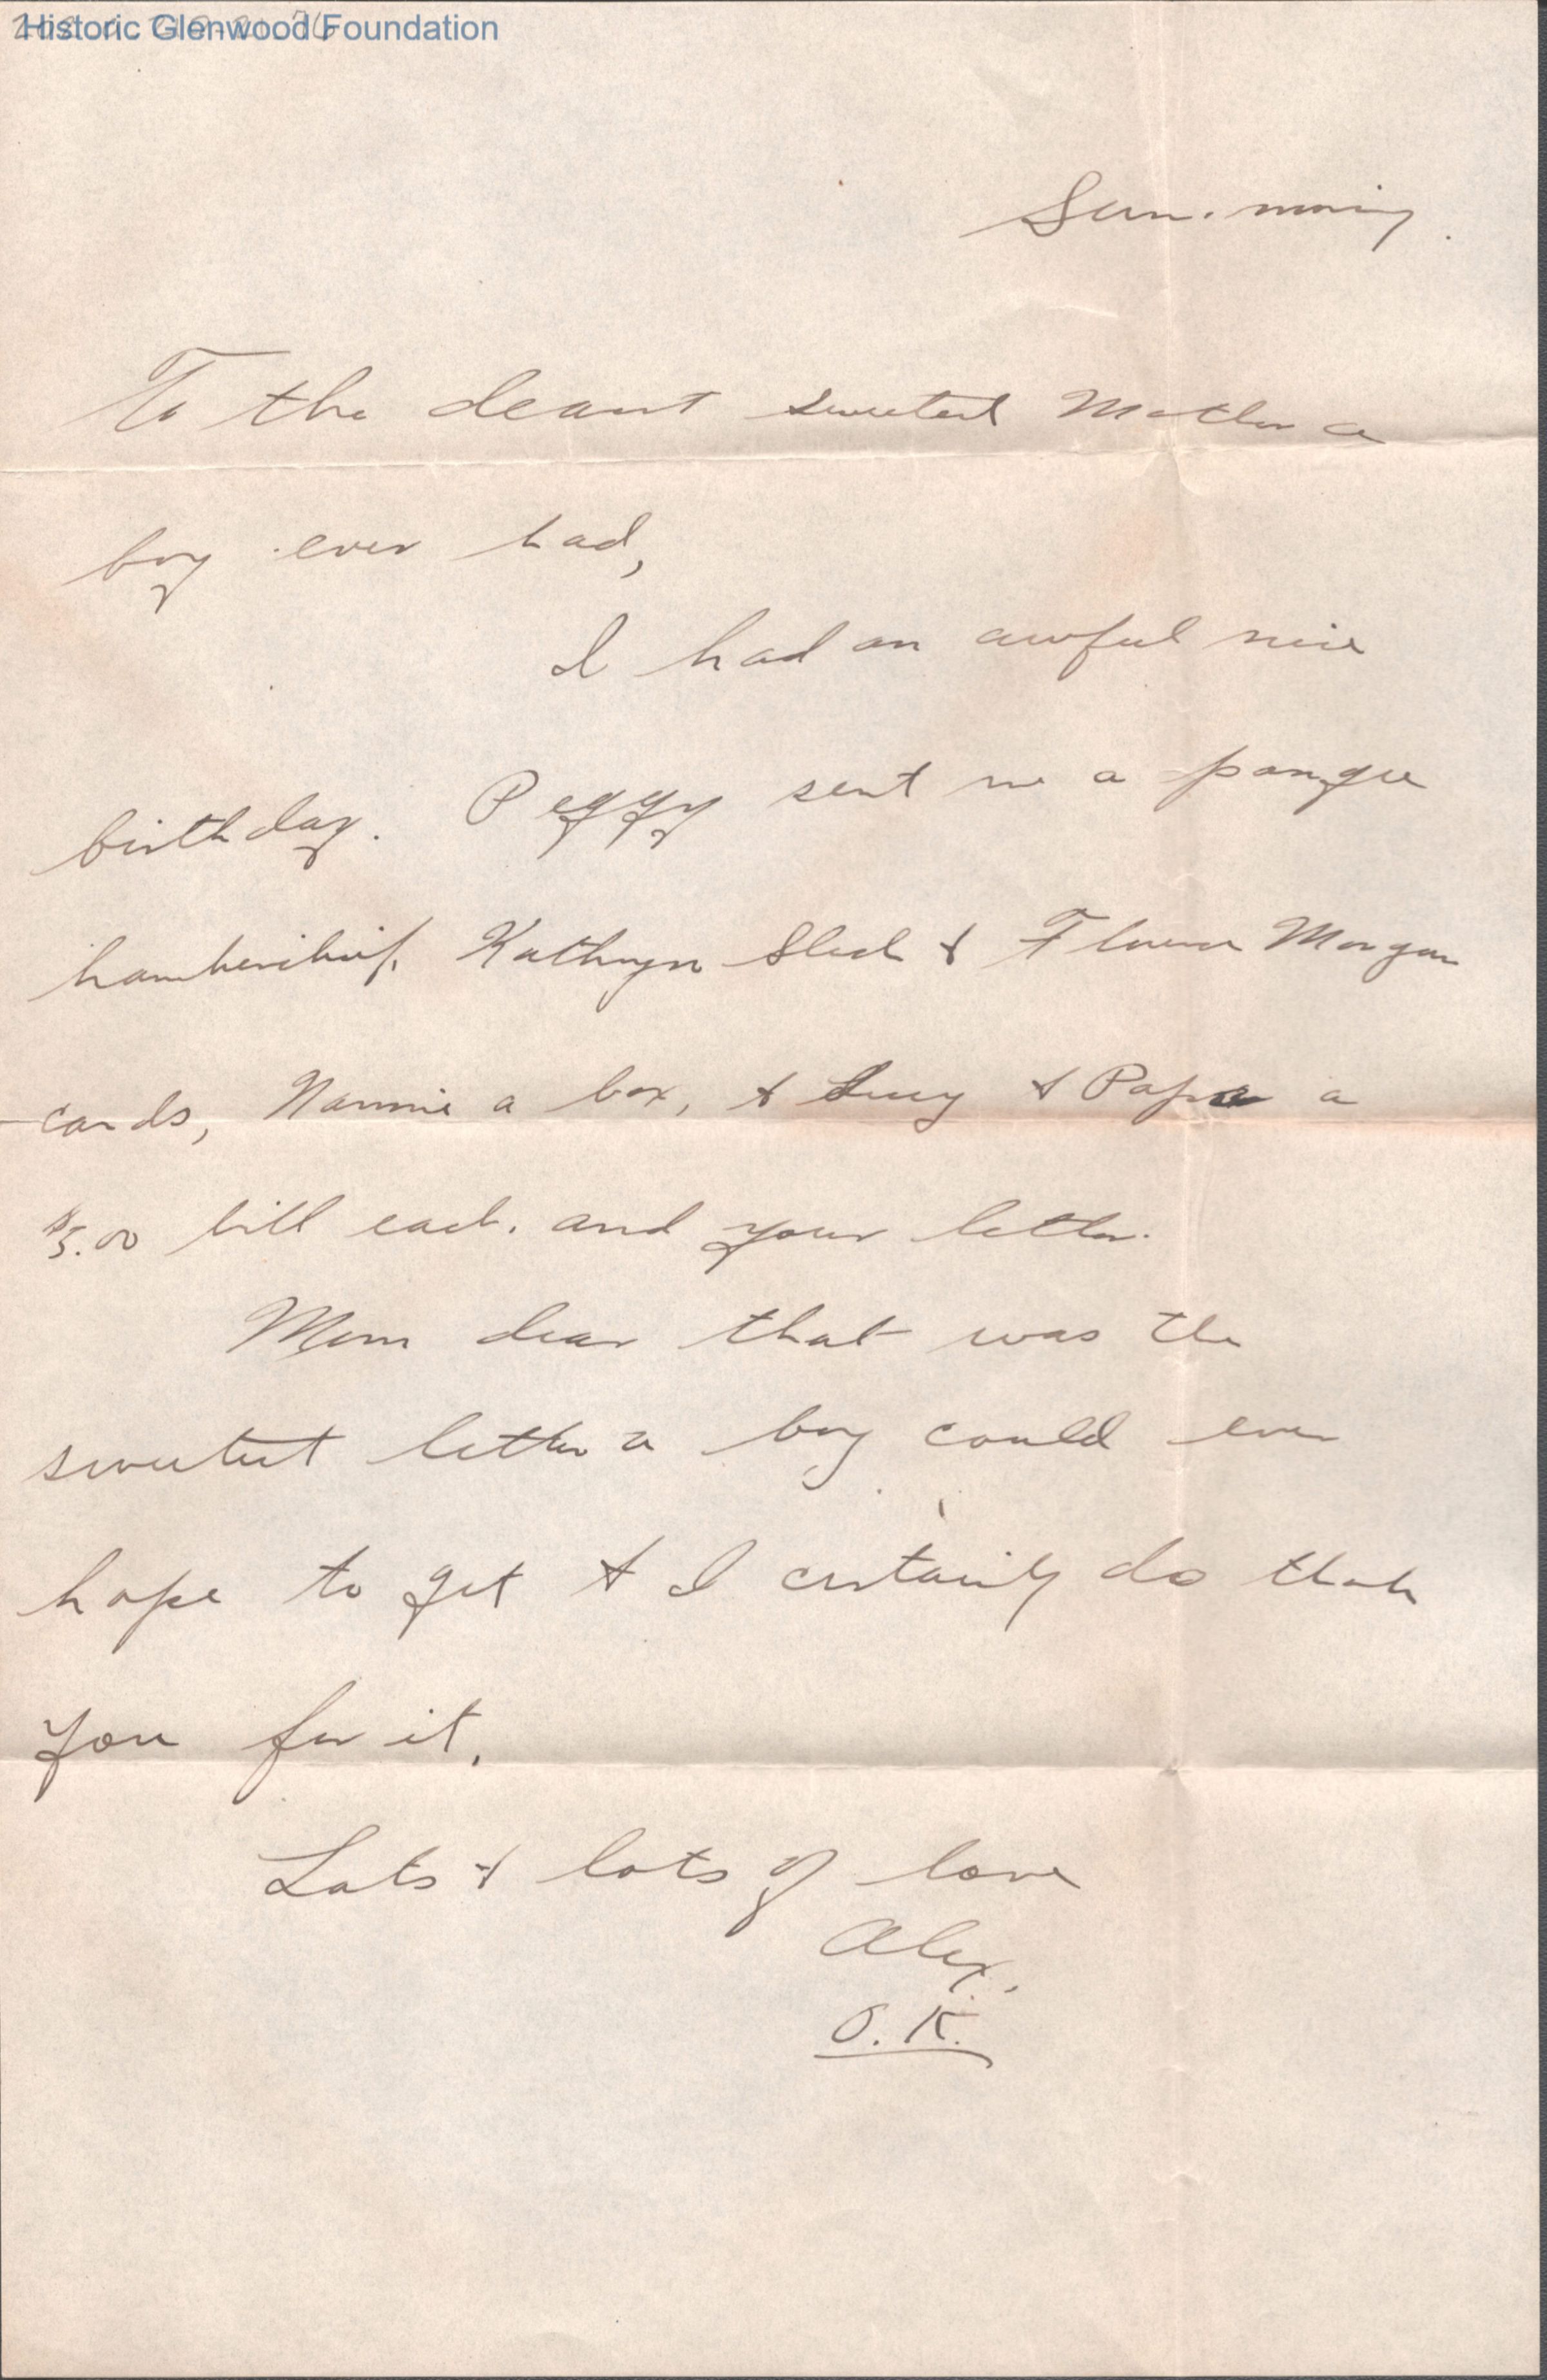 Historic Glenwood Foundation
Sun. morning.
To the dearest sweetest Mother a
boy ever had,
I had an awful nice
birthday. Peggy sent me a pongee
hankerchief, Kathryn & Florence Morgan
cards, Nannie a box, & Lucy & Papa a
$5.00 bill each. and your letter.
Mom dear that was the
sweetest letter a boy could ever
hope to get & I certainly do thank
you for it.
Lots & lots of love
Alex.
O.K.